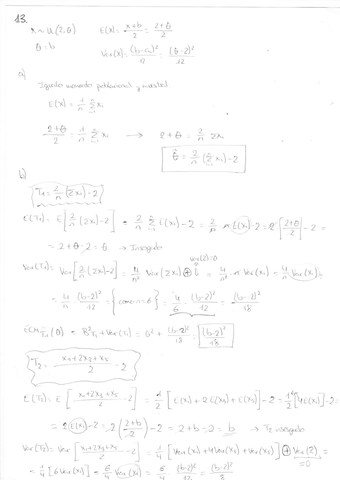 13.
x ~ U(2,θ)   E(X) = (x+b)/2 = (2+θ)/2
θ = b   Var(X) = (b-a)²/12 = (θ-2)²/12
a)
Igualando momento poblacional y muestral
E(X) = 1/n Σ xi
(2+θ)/2 = 1/n Σ xi → 2+θ = 2/n Σxi
θ̂ = 2/n (Σ xi) - 2
b)
T1 = 2/n (Σxi) - 2
E(T1) = E[2/n (Σxi) - 2] = 2/n Σ E(xi) - 2 = 2/n · n E(xi) - 2 = 2 [(2+θ)/2] - 2 =
= 2+θ-2 = θ → Insesgado
Var(2)=0
Var(T1) = Var[2/n (Σxi) - 2] = 4/n² Var(Σxi) ⊕ = 4/n² · n Var(xi) = 4/n Var(xi) =
= 4/n · (b-2)²/12 = {como n=6} = 4/6 · (b-2)²/12 = (b-2)²/18
ECM T1(θ) = B²T1 + Var(T1) = 0² + (b-2)²/18 = (b-2)²/18
T2 = (x1+2x3+x5)/2 - 2
E(T2) = E[(x1+2x3+x5)/2 - 2] = 1/2 [E(x1)+2E(x3)+E(x5)] - 2 = 1/2 [4E(x)] - 2 =
= 2 E(x) - 2 = 2 ((2+b)/2) - 2 = 2+b-2 = b → T2 insesgado
Var(T2) = Var[(x1+2x3+x5)/2 - 2] = 1/4 [Var(x1)+4Var(x3)+Var(x5)] ⊕ Var(2) =
=0
= 1/4 [6Var(xi)] = 6/4 Var(xi) = 6/4 (b-2)²/12 = (b-2)²/8